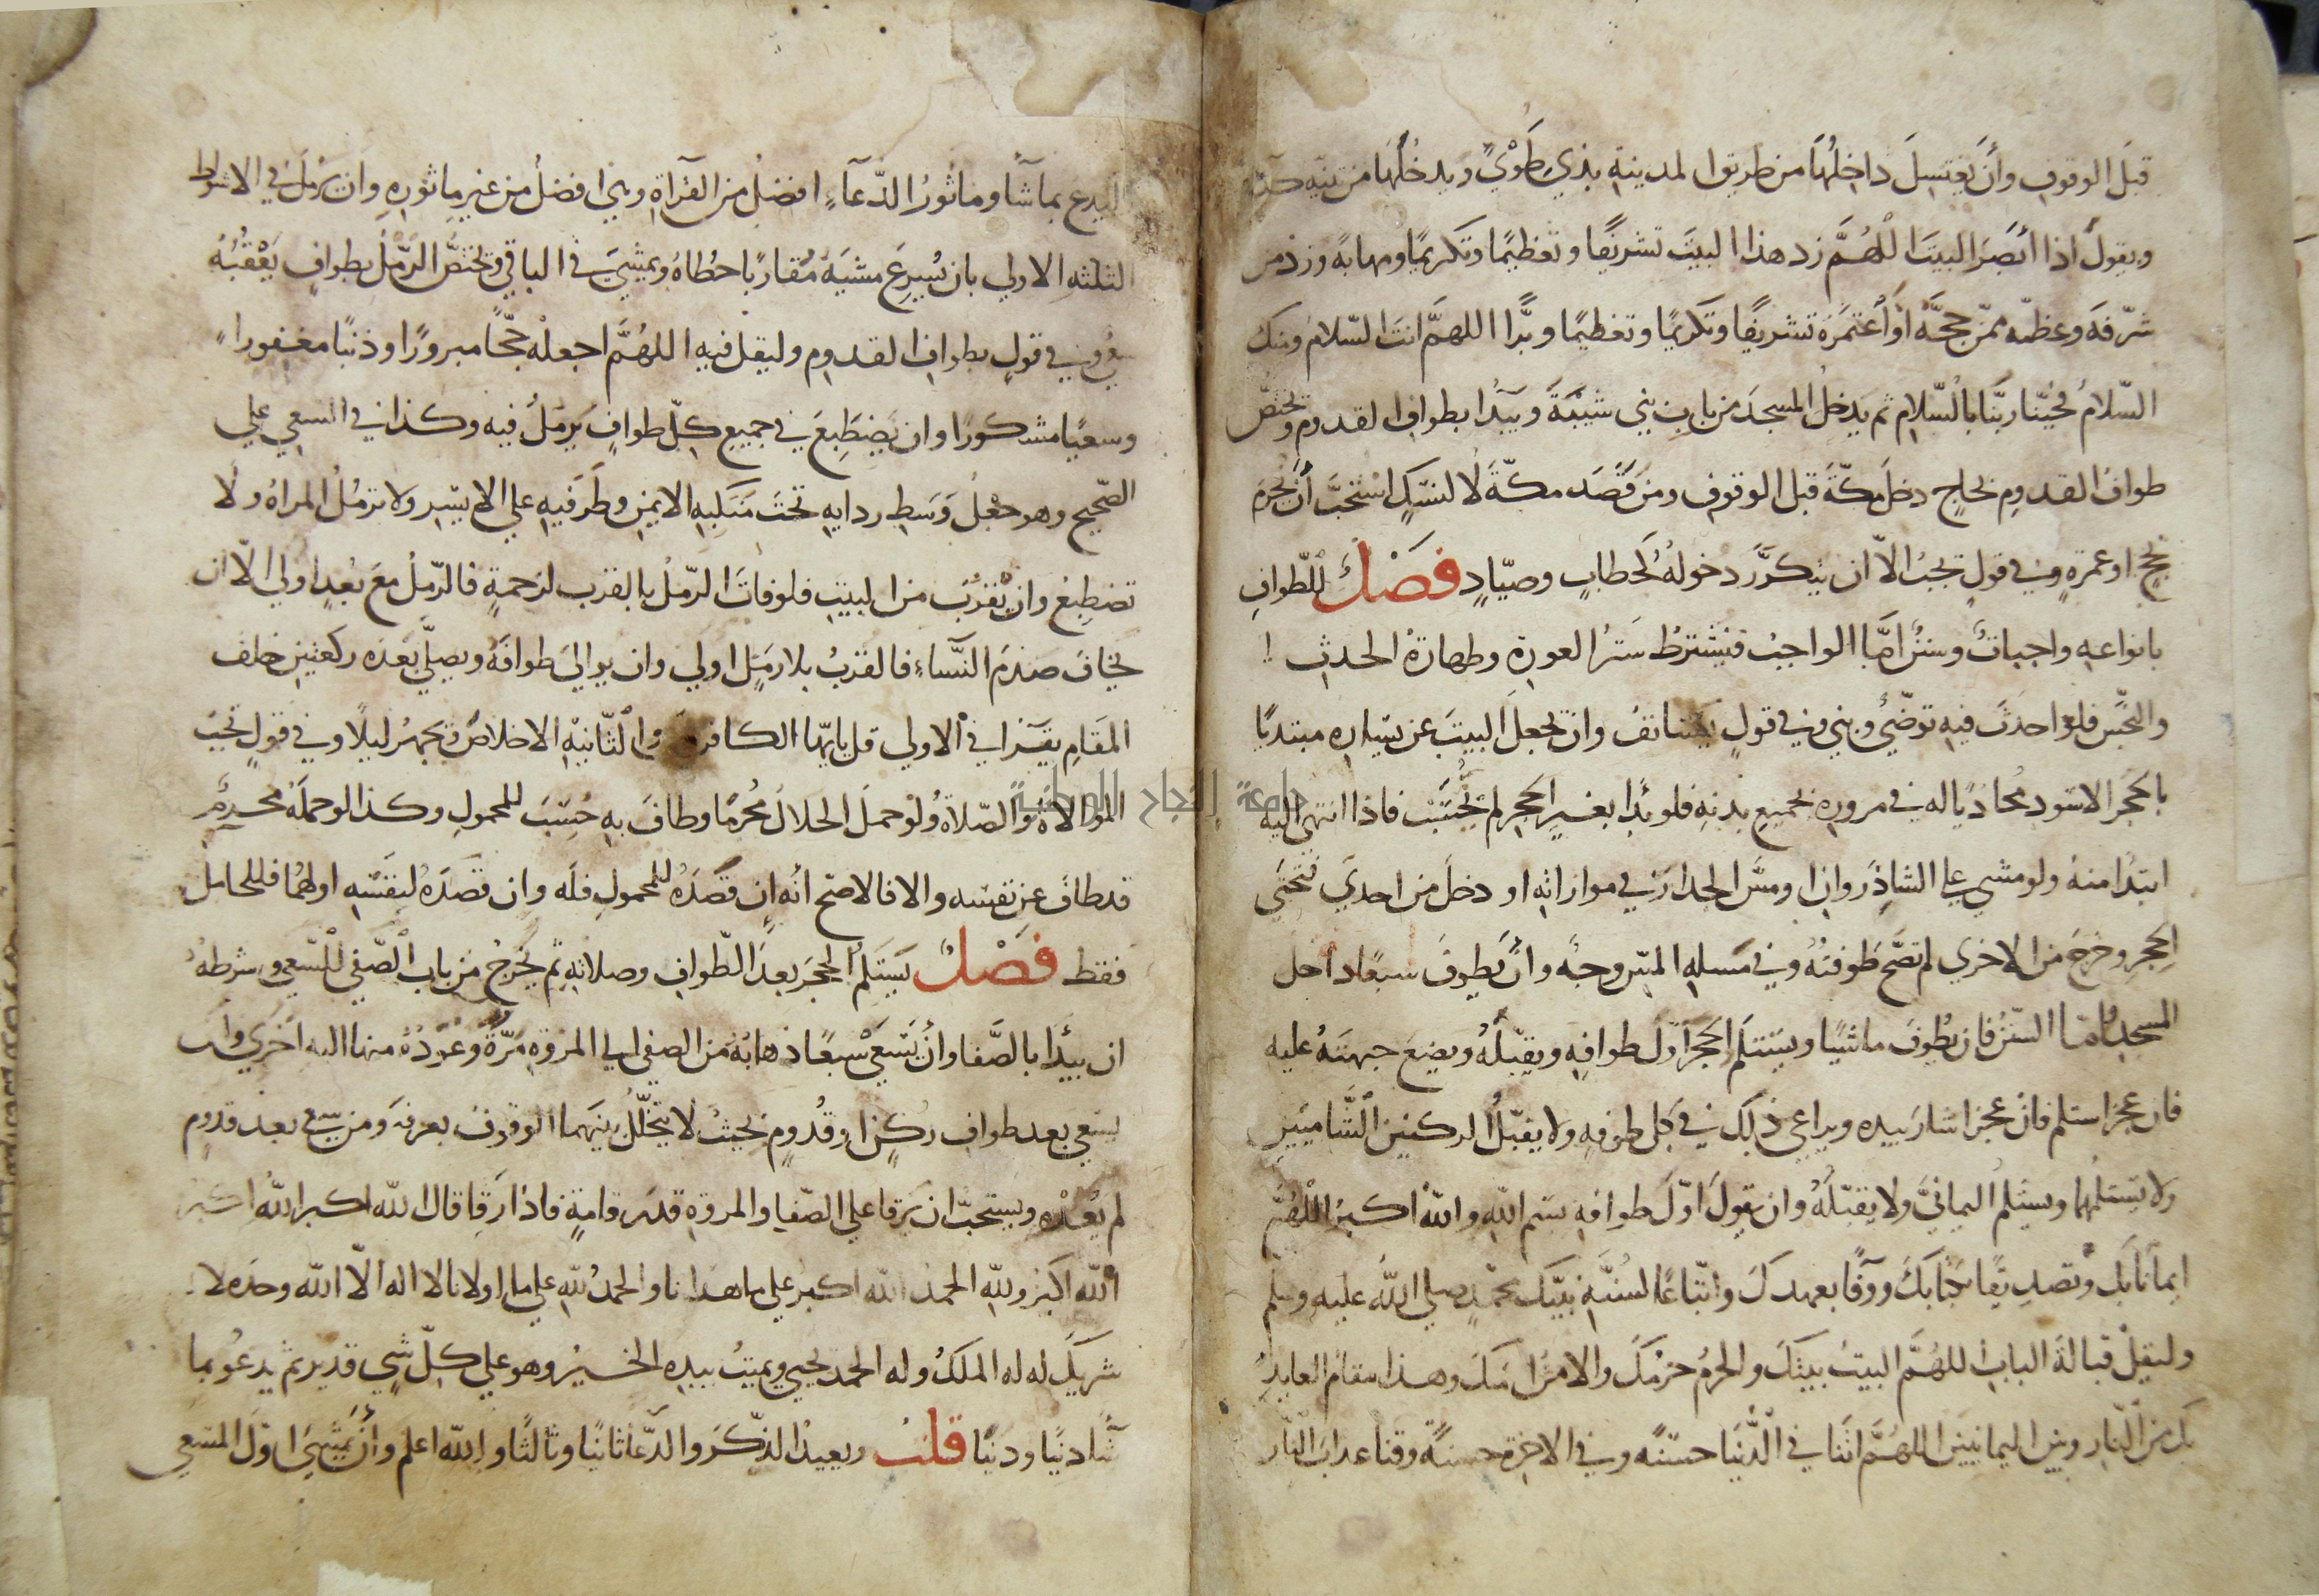 قبلَ الوقوفِ وأَنْ يَغتَسِلَ داخِلُهَا من طريق المدينةِ بذي طَوًى ويدخُلُهَا من ثنيّه كَدآءٍ
ويقولُ اذا ابْصَرَ البيتَ اللّهُمَّ زد هذا البيتَ تشريفًا وتعظيمًا وتكريمًا ومهابةً وزد من
شرّفه وعظّمه ممّن حجَّهُ اوْ اعتمَرَهُ تشريفًا وتكريمًا وتعظيمًا وبرًّا اللهمَّ انتَ السّلام ومنك
السّلامُ فحيّنا ربَّنا بالسّلامِ ثم يدخلُ المسجدَ من بابِ بني شيبَةَ ويَبدَأُ بطوافِ القدوم وتختصُّ
طوافُ القدومِ بحاجٍ دخلَ مكّةَ قبل الوقوف ومن قَصَدَ مكّةَ لا لنسُكٍ استُحبَّ أن يُحرِمَ
بحجٍ او عمرةٍ وفي قولٍ تجبُ الاّ ان يتكرَّرَ دخولُهُ كحطابٍ وصيّادٍ فَصْلٌ للطّوافِ
بانواعِهِ واجباتٌ وسننٌ امَّا الواجبُ فيُشترطُ سَترُ العورةِ وطهارةُ الحدثِ
والنجَسِ فلو احدَثَ فيه توضّئُ وبني وفي قولٍ يستانفُ وان يجعلَ البيتَ عن يسَارِهِ مبتديًا
بالحَجَرِ الاسَوَدِ مُحاذيًا له في مرورِهِ بجميعِ بدنِهِ فلو بدَا بغيرِ الحجرِ لم يُحْسَبْ فاذا انتهي اليه
ابتدَا منهُ ولو مشي علي الشاذِرَوانِ او مسَّ الجدارَ في موازاتِهِ او دخلَ من احدي فتحتَي
الحِجرِ وخرجَ من الاخري لم تصَّحَ طَوفتُهُ وفي مسَلهِ المسّ وجهٌ وأن يَطوفَ سبعًا داخل
المسجد وامّا السّننُ فان يطُوفَ ماشيًا ويستَلَم الحجرَ اوّلَ طوافِهِ ويقبّلَهُ ويضعَ جبهتَهُ عليه
فان عجزَ استلم فان عجز اشارَ بيده ويراعي ذلك في كلِ طوفةٍ ولا يقبّلُ الركنينِ الشَّاميّينِ
ولا يستلمُهما ويستلمُ اليمانيَّ ولا يقبّلُهُ وان يقولَ اوّلَ طوافِهِ بسَم اللهِ واللهُ اكبرُ اللّهُمَّ
ايمانًا بك وتَصديقًا بكتابكَ ووفًا بعهدكَ واتّباعًا لسُنّةِ نبيّك محمّدٍ صلي اللهُ عليه وسلّم
وليقلْ قبالةَ البابِ اللهُمَّ البيتُ بيتكَ والحرمُ حرَمُكَ والامنُ امنكَ وهذا مقامُ العايذِ
بكَ من النّارِ وبين اليمانيينِ اللهُمَّ اتنا في الدُّنيَا حسَنةً وفي الاخرة حسنةً وقنا عذابَ النّار
وليدع بما شآءَ وماثورُ الدّعآءِ افضلُ من القرآةِ وهي افضلُ من غيرِ ماثورِهِ وان يرملَ في الاشواط
الثلثه الاولي بان يُسرِعَ مشيَهُ مُقاربًا خُطاهُ ويمشيَ في الباقي وتختصُّ الرّمَلُ بطوافٍ يَعْقُبُهُ
سعي وفي قولٍ بطوافِ القدومِ وليقل فيه اللهُمَّ اجعلهُ حجًّا مبرورًا وذنبًا مغفورًا
وسعيًا مشكورًا وان يَضطَبِعَ في جميع كلّ طوافٍ يَرمُلُ فيه وكذا في السعي علي
الصّحيح وهو جعْلُ وَسَطِ ردايهِ تحتَ مَنكبِهِ الايمنِ وطَرفَيهِ علي الايسَرِ ولا ترمُلُ المراةُ ولا
تضطِبعُ وان يقرُبَ من البيتِ فلو فاتَ الرّملُ بالقرب لزحمةٍ فالرّملُ مع بُعدٍ اولي الاّ ان
يخافَ صدْمَ النّساءِ فالقربُ بلا رمَلٍ اولي وان يوالي طوافَهُ ويصلّي بعدَه ركعتينِ خلفَ
المقامِ يقرَا في الاولي قل يايّها الكافرون والثّانيةِ الاخلاصُ ويجهرُ ليلًا وفي قولٍ تجبُ
الموالاةُ والصّلاةُ ولوْ حملَ الحلالُ مُحرمًا وطافَ بهِ حُسِبَ للمحمولِ وكذا لو حمله محرمٌ
قد طافَ عن نفسه والا فالاصح انهُ ان قصَدَهُ للمحمولِ فله وان قصَدَهُ لنفسِهِ او لهمَا فللحامل
فقط فَصْلٌ يستَلمُ الحجرَ بعدَ الطّوافِ وصلاتهِ ثم يخرجُ من باب الصّفي للسّعي وشرطهُ
ان يبدَأ بالصَّفا وأن يَسْعَي سبعًا ذهابُهُ من الصفي الي المروةِ مرّةٌ وعَودُهُ منها اليه اخري وان
يسعي بعد طوافِ رُكنٍ او قُدُومٍ بحيثُ لا يتخلّلُ بينَهما الوقوفُ بعرفةَ ومن سعي بعد قدومٍ
لم يُعدْهُ ويستحبُّ ان يَرقا علي الصّفا والمروةِ قدرَ قامةٍ فاذا رَقِا قال الله اكبر اللهُ اكبر
اللهُ اكبرُ وللهِ الحمدُ الله اكبرُ علي ما هدانا والحمدُ للهِ علي ما اولانا لا اله الّا الله وحدَه لا
شريكَ له له الملكُ وله الحمد يحيي ويميتُ بيده الخيرُ وهو علي كلّ شيءٍ قدير ثم يدعُو بما
شآءَ دنيًا ودينًا قلتُ ويعيدُ الذّكرَ والدّعآ ثانيًا وثالثًا والله اعلم وأن يَمْشيَ اوّلَ المسَعي